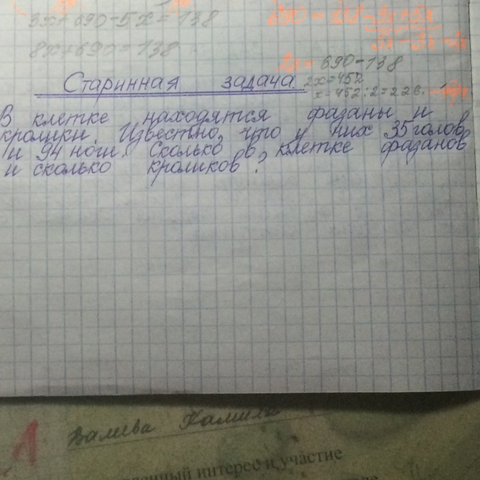 3x+690-5x=138
8x+690=138
690-138
2x=452
x=452:2=226.
Старинная задача
В клетке находятся фазаны и
кролики. Известно, что у них 35 голов
и 94 ноги. Сколько в клетке фазанов
и сколько кроликов?
интерес и участие